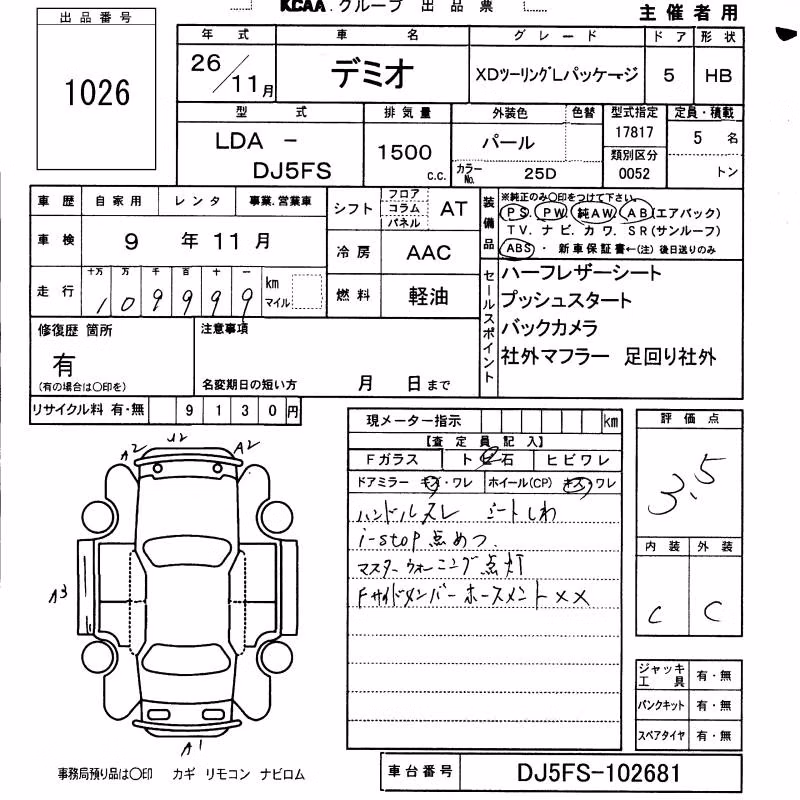 KCAA.グループ 出品票
主催者用
出品番号
1026
年式 車名 グレード ドア 形状
26/11月 デミオ XDツーリングLパッケージ 5 HB
型式 排気量 外装色 色替 型式指定 定員・積載
LDA － DJ5FS 1500 c.c. パール 17817 5 名
類別区分
カラーNo. 25D 0052 トン
車歴 自家用 レンタ 事業.営業車
シフト フロア コラム パネル AT
車検 9 年 11 月
冷房 AAC
走行 十万 万 千 百 十 一 km マイル
1 0 9 9 9 9
燃料 軽油
装備品 ※純正のみ〇印をつけて下さい。
PS. PW. 純AW. AB(エアバック)
TV. ナビ. カワ. SR(サンルーフ)
ABS ・ 新車保証書←(注) 後日送りのみ
セールスポイント
ハーフレザーシート
プッシュスタート
バックカメラ
社外マフラー 足回り社外
修復歴 箇所
有
(有の場合は〇印を)
注意事項
名変期日の短い方 月 日まで
リサイクル料 有・無 9 1 3 0 円
現メーター指示 km
【査定員記入】
Fガラス ト 石 ヒビワレ
ドアミラー キズ・ワレ ホイール(CP) キズ・ワレ
ハンドルスレ シートしわ
i-stop点めつ
マスターウォーニング点灯
Fサイドメンバーホースメント××
評価点
3.5
内装 外装
C C
A2 U2 A2
A3
A1
ジャッキ 工具 有・無
パンクキット 有・無
スペアタイヤ 有・無
事務局預り品は〇印 カギ リモコン ナビロム
車台番号 DJ5FS-102681